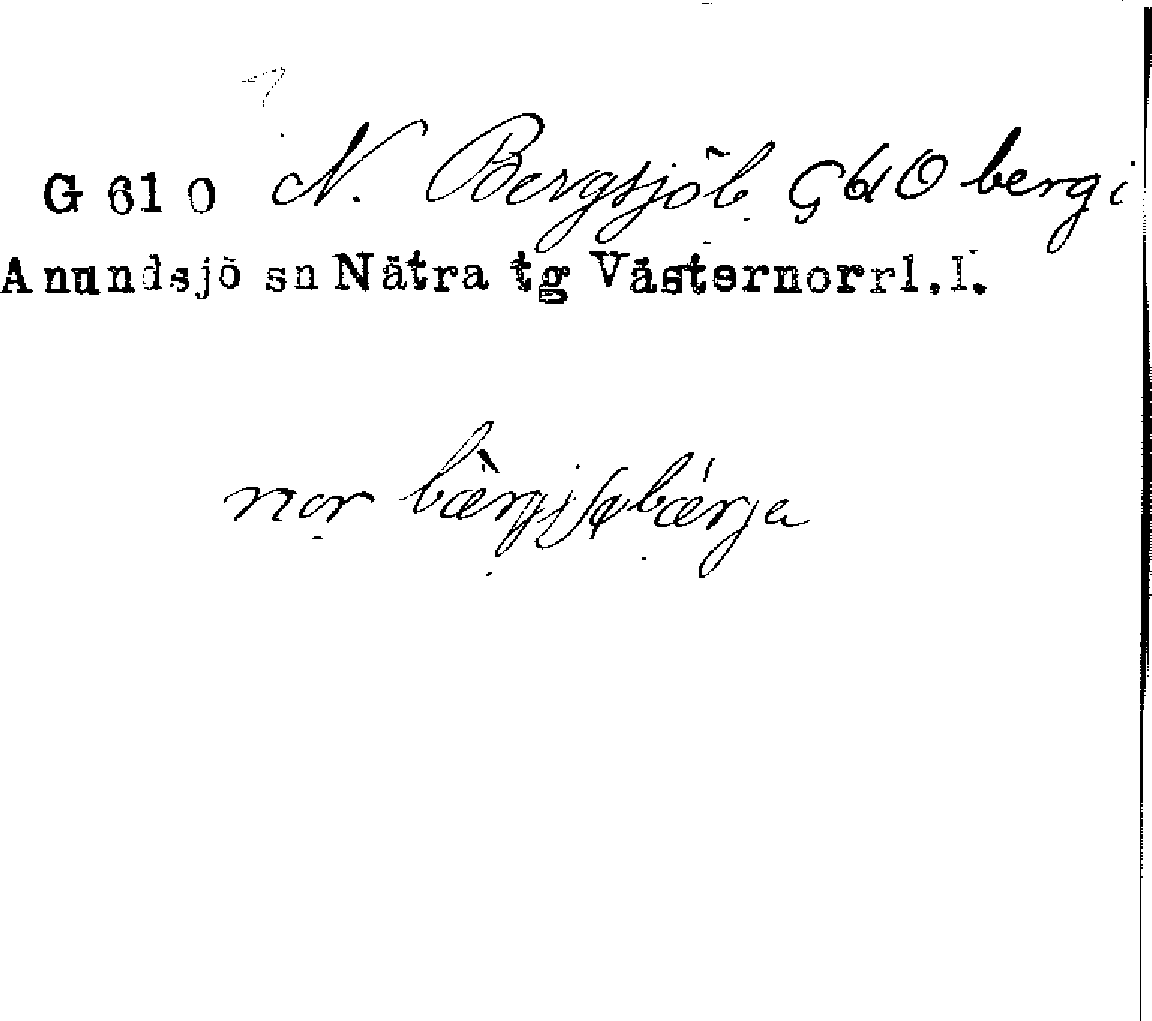 G 610 N. Bergsjöb. G610 bergi
Anundsjö sn Nätra tg Västernorrl.l.
nor bærgjsøbærja